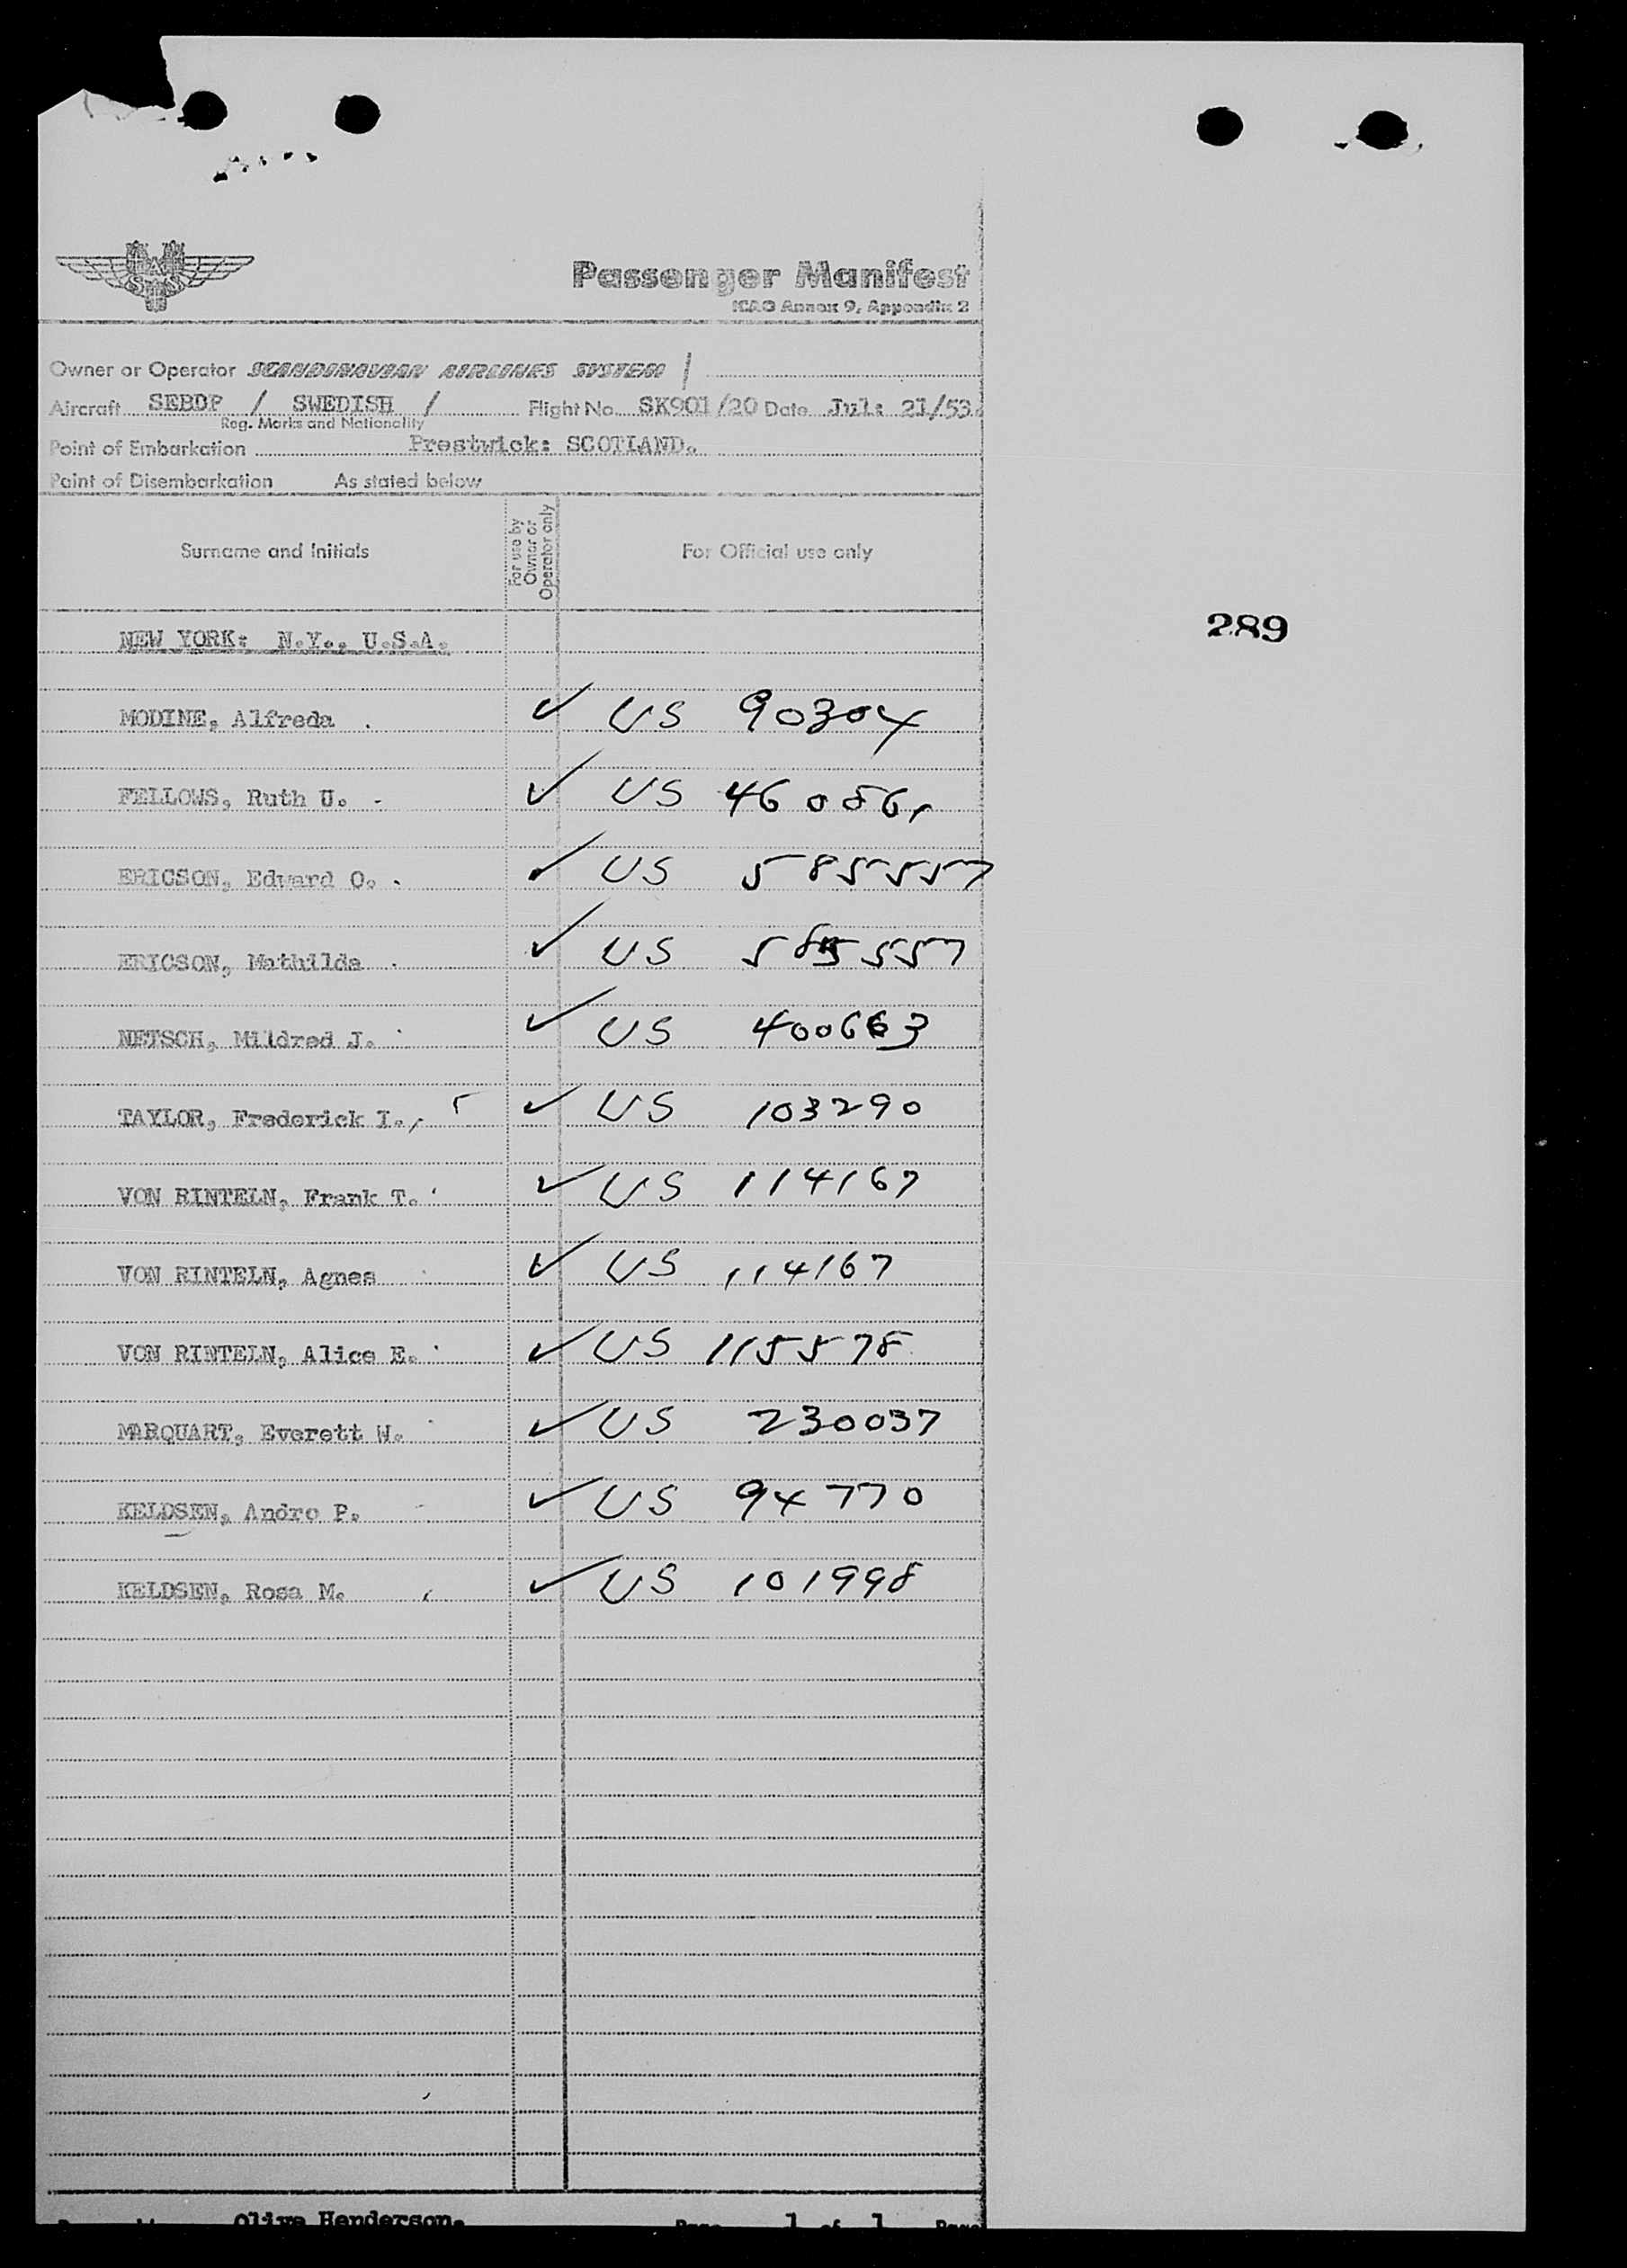 SAS
Passenger Manifest
ICAO Annex 9, Appendix 2
Owner or Operator SCANDINAVIAN AIRLINES SYSTEM /
Aircraft SEBDP / SWEDISH / Flight No. SK901/20 Date Jul: 21/53.
Reg. Marks and Nationality
Point of Embarkation Prestwick: SCOTLAND.
Point of Disembarkation As stated below
Surname and Initials For use by Owner or Operator only For Official use only
NEW YORK: N.Y., U.S.A.
289
MODINE, Alfreda ✓ US 90304
FELLOWS, Ruth U. ✓ US
ERICSON, Edward O. ✓ US 585557
ERICSON, Mathilda ✓ US 585557
NETSCH, Mildred J. ✓ US 400663
TAYLOR, Frederick I. ✓ US 103290
VON RINTELN, Frank T. ✓ US 114167
VON RINTELN, Agnes ✓ US 114167
VON RINTELN, Alice E. ✓ US 115578
MARQUART, Everett W. ✓ US 230037
KELDSEN, Andro P. ✓ US 94770
KELDSEN, Rosa M. ✓ US 101998
Olive Henderson. Page 1 of 1 Page